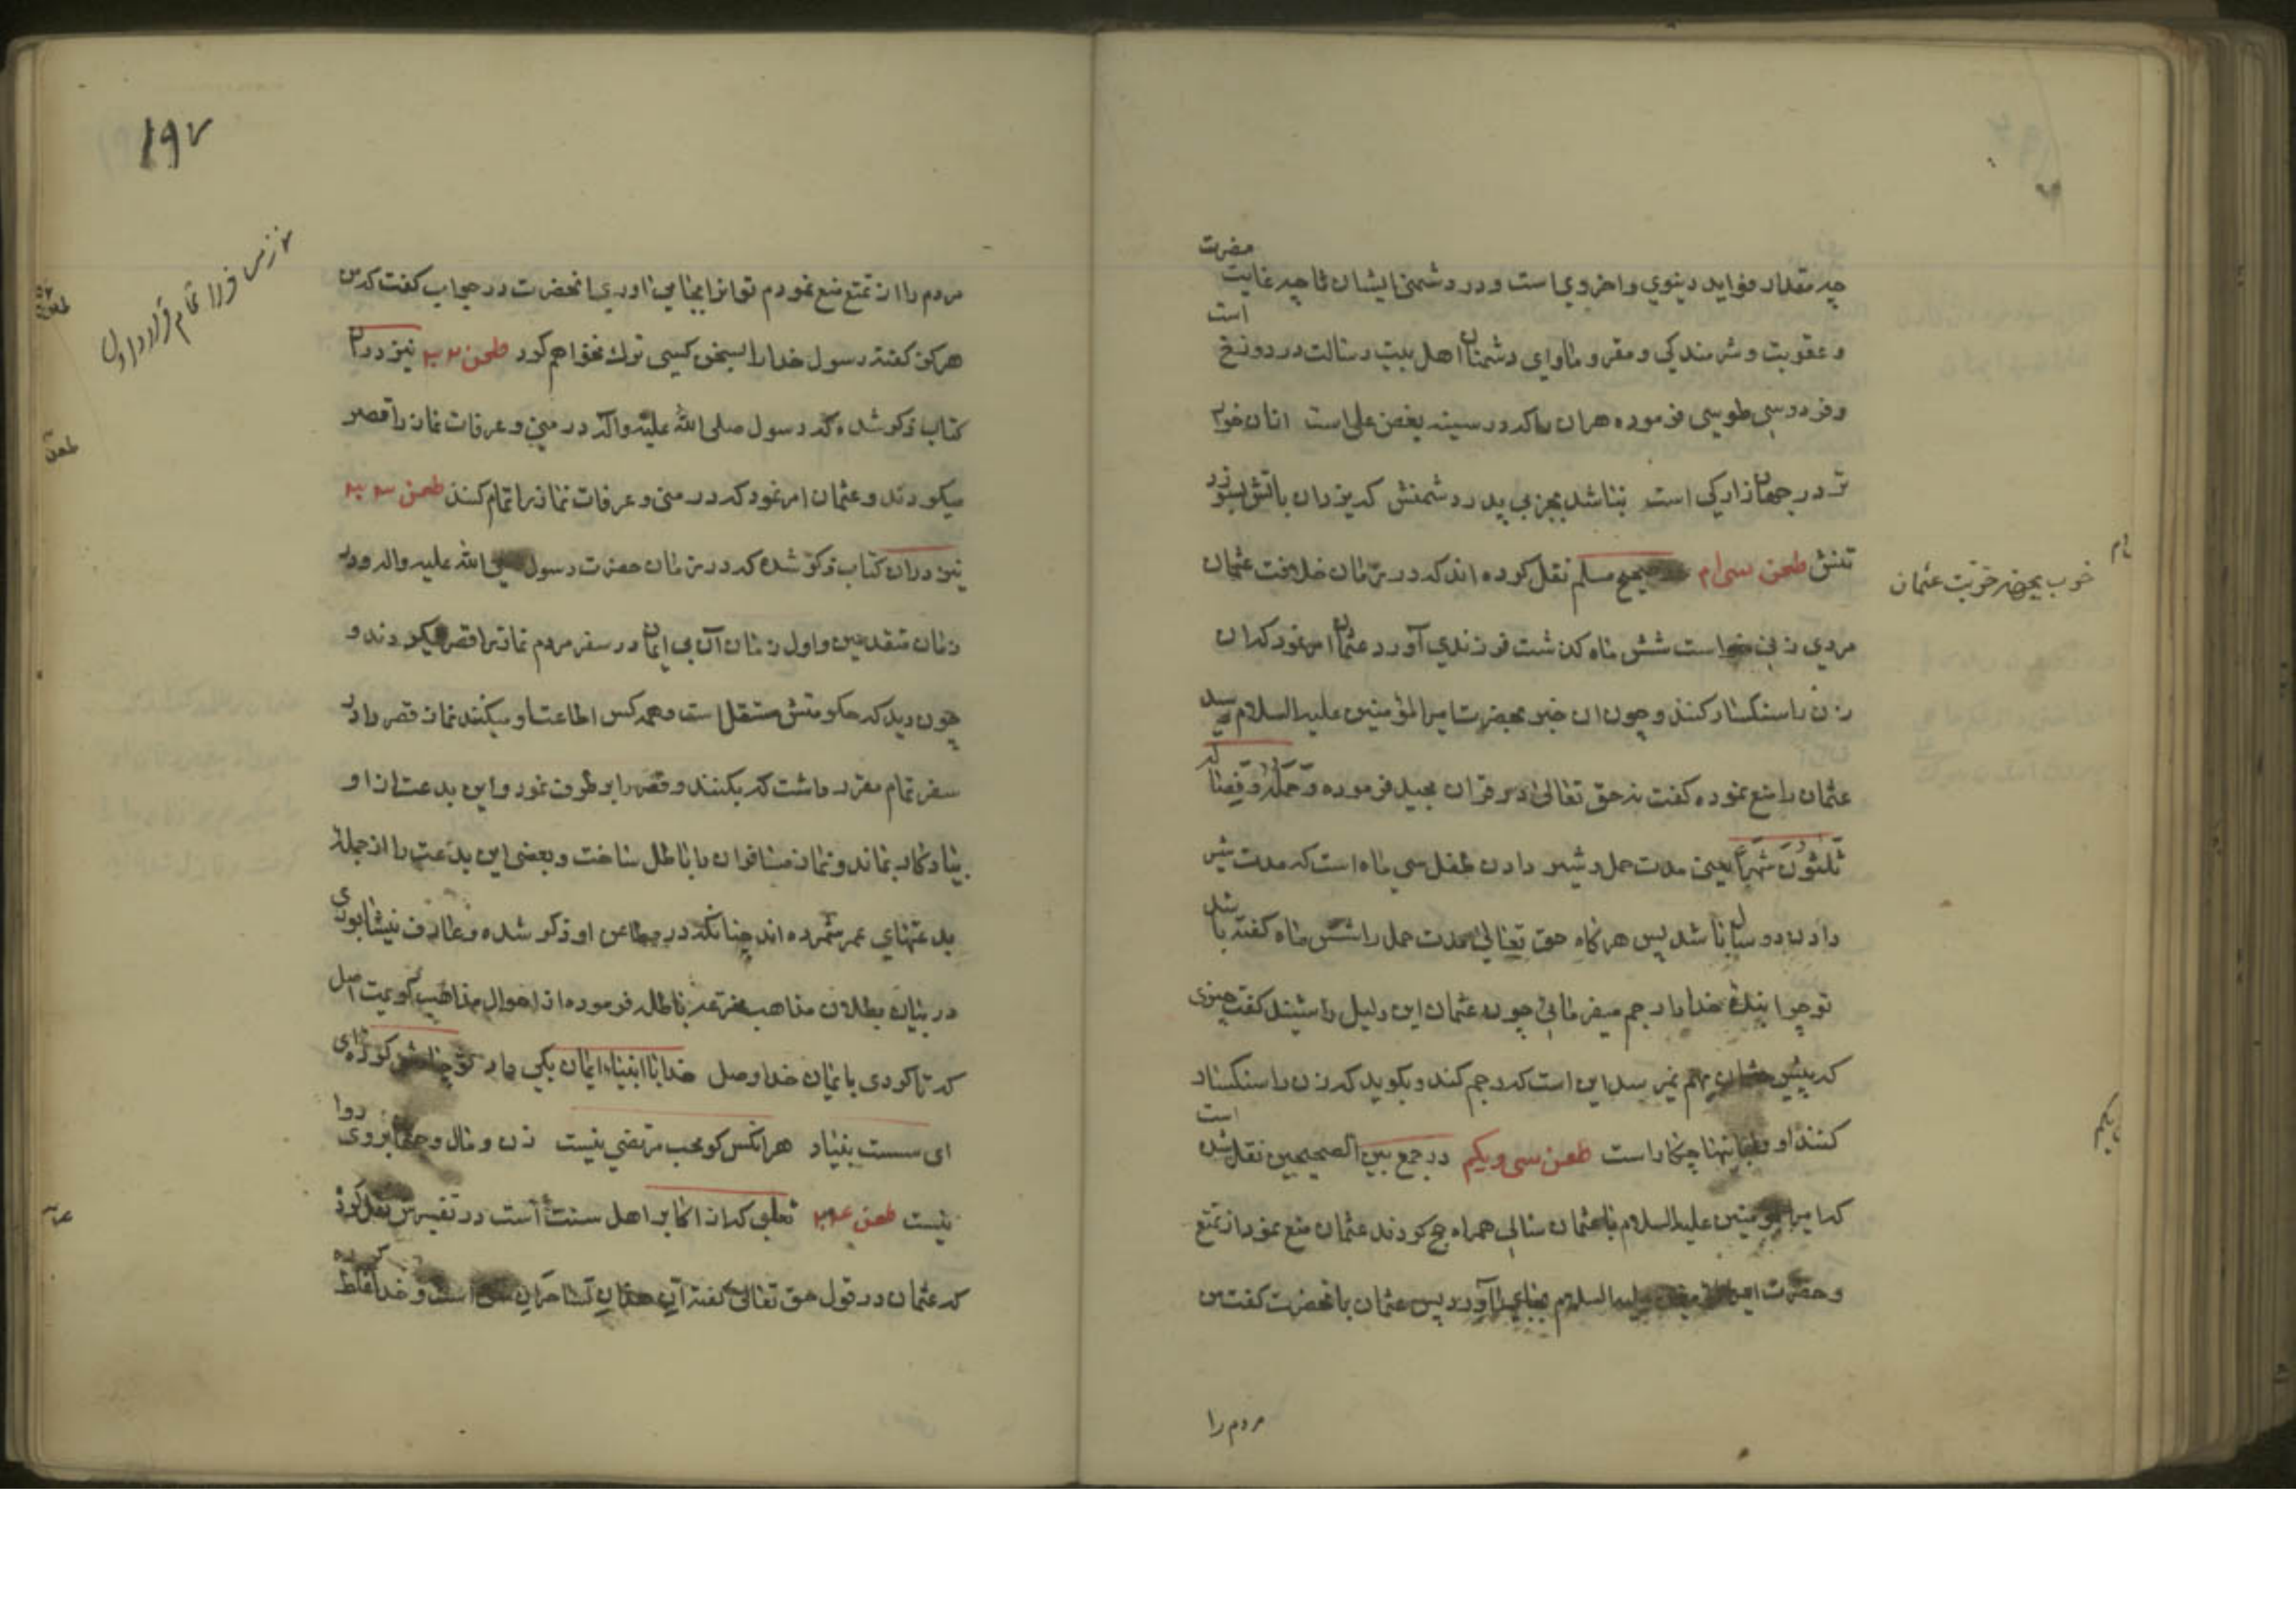 چه مقدار فواید دینوي و اخروي است و در دشمنی ایشان تا چه غایت مضرت
و عقوبت و شرمندکي و مقر و ماواي دشمنان اهل بیت رسالت در دوزخ است
و فردوسی طوسی فرموده هران راکه در سینه بغض علی است ازان خوار
تر در جهان زار کي است نباشد بجز بي پدر دشمنش که یزدان باتش بسوزد
تنش طعن سی ام صحیح مسلم نقل کرده اند که در زمان خلافت عثمان
مردي زنی خواست شش ماه کذشت فرزندي آورد عثمان امر نمود که ان
زن را سنکسار کنند و چون ان خبر بحضرت امیر المؤمنین علیه السلام رسید
عثمان را منع نموده کفت نه حق تعالی در قران مجید فرموده که وَحَمْلُهُ وَفِصَالُهُ
ثَلٰثُونَ شَهْراً یعنی مدت حمل و شیر دادن طفل سي ماه است که مدت شیر
دادن دو سال باشد پس هرکاه حق تعالیٰ مدت حمل را شش ماه کفته باشد
تو چرا بندهٔ خدا را رجم میفرمائي چون عثمان این دلیل را شنید کفت چیزی
که پیش بهم نمیرسد این است که رجم کند و بکوید که زن را سنکسار
کنند او و اینها چکار است طعن سی و یکم در جمع بین الصحیحین نقل شده است
که امیر المومنین علیه السلام با عثمان سالي همراه حج کردند عثمان منع نمود از تمتع
و حضرت امیر المؤمنین علیه السلام بجاي آورد پس عثمان بانحضرت کفت من
مردم را
خوب عثمان
۱۹۷
مردم را از تمتع منع نمودم تو انرا بجا می اوری انحضرت در جواب کفت که من
هرکز کفته رسول خدا را بسخن کسی ترك نخواهم کرد طعن ۳۲ نیز دران
کتاب ذکر شده که رسول صلی الله علیه واله در منی و عرفات نماز را قصر
میکردند و عثمان امر نمود که در منی و عرفات نماز را تمام کنند طعن ۳۳
نیز دران کتاب ذکر شده که در زمان حضرت رسول صلی الله علیه واله و در
زمان متقدمین و اول زمان آن بی ایمان در سفر مردم نماز را قصر میکردند و
چون دید که حکومتش مستقل است و همه کس اطاعت او میکنند نماز قصر را در
سفر تمام مقرر داشت که بکنند و قصر را بر طرف نمود و این بدعت از او
بیادکار بماند و نماز مسافران را باطل ساخت و بعضی این بدعت را از جمله
بدعتهای عمر شمرده اند چنانکه در مطاعن او ذکر شده و عارف نیشابوری
در بیان بطلان مذاهب مخترعه باطله فرموده از احوال مذاهب کویمت اصل
که تا کردی بایمان خدا وصل خدا با انبیاء ایمان یکي داد تو
ای سست بنیاد هر انکس کو محب مرتضی نیست زن و مال و روا
نیست طعن ثعلبی که از اکابر اهل سنت است در تفسیرش نقل کرده
که عثمان در قول حق تعالی کفته اِنَّ هٰذٰانِ لَسٰاحِرٰانِ است و خدا غلط کرده
طعن
طعن